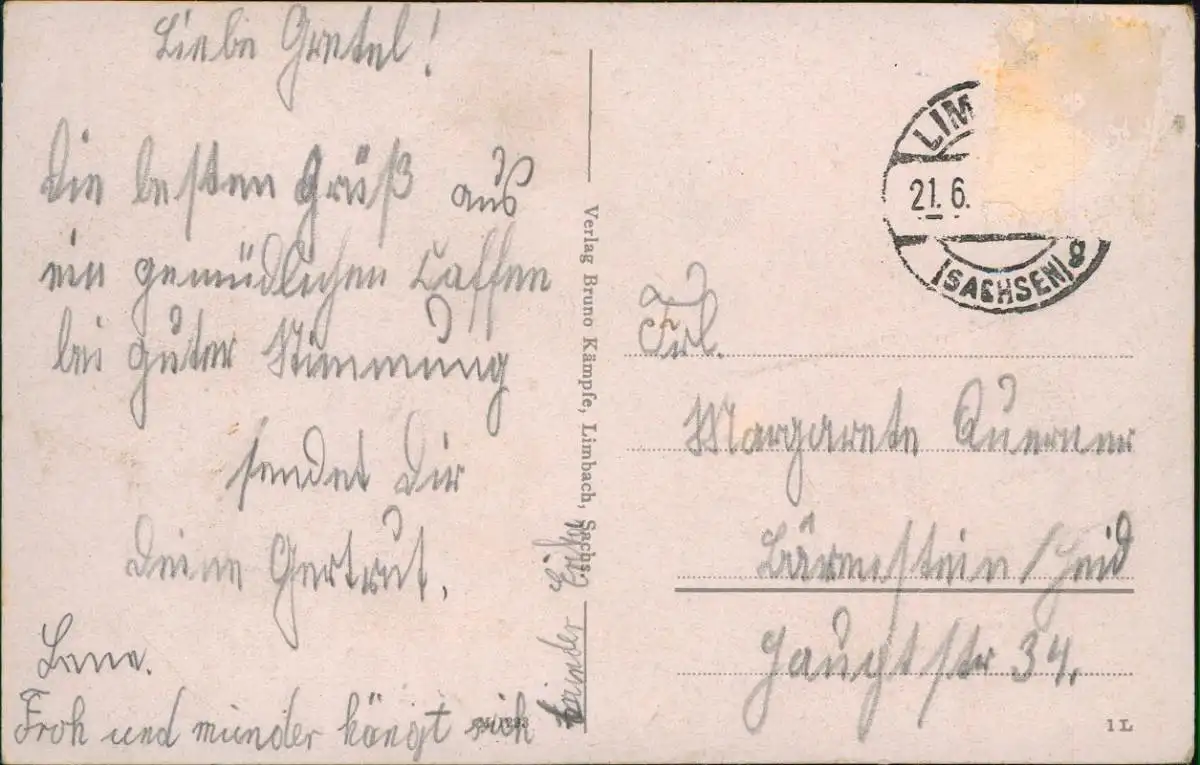 Liebe Gretel!
Die besten Grüß aus
ein gemüdlichen Kaffee
bei guter Stimmung
sendet Dir
Deine Gertrut.
Lene.
Froh und munder sich
Verlag Bruno Kämpfe, Limbach, Sachs.
LIM
21.6.
(SACHSEN) g
Frl.
Margarete Querner
Bärenstein/
Hauptstr 34.
1 L